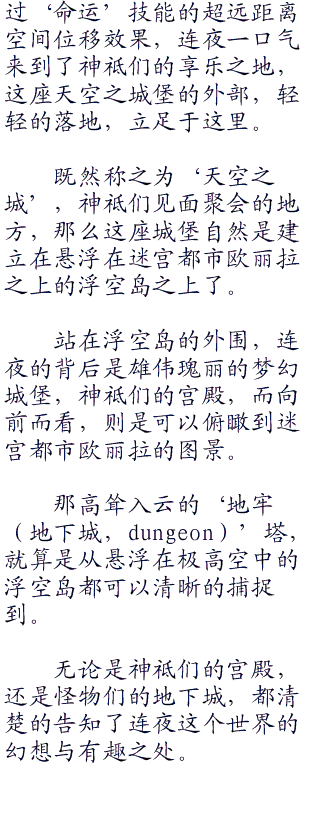 过‘命运’技能的超远距离
空间位移效果，连夜一口气
来到了神祇们的享乐之地，
这座天空之城堡的外部，轻
轻的落地，立足于这里。
既然称之为‘天空之
城’，神祇们见面聚会的地
方，那么这座城堡自然是建
立在悬浮在迷宫都市欧丽拉
之上的浮空岛之上了。
站在浮空岛的外围，连
夜的背后是雄伟瑰丽的梦幻
城堡，神祇们的宫殿，而向
前而看，则是可以俯瞰到迷
宫都市欧丽拉的图景。
那高耸入云的‘地牢
（地下城，dungeon）’塔，
就算是从悬浮在极高空中的
浮空岛都可以清晰的捕捉
到。
无论是神祇们的宫殿，
还是怪物们的地下城，都清
楚的告知了连夜这个世界的
幻想与有趣之处。